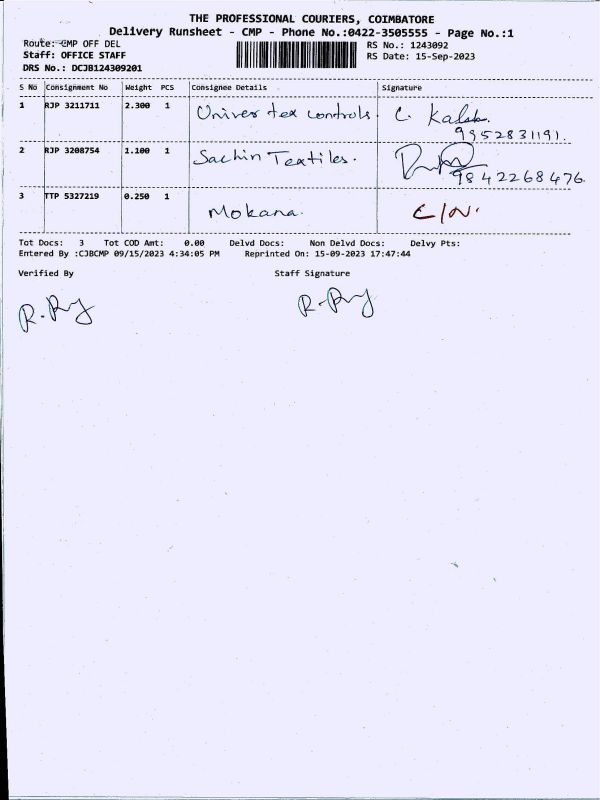 THE PROFESSIONAL COURIERS, COIMBATORE
Delivery Runsheet - CMP - Phone No.:0422-3505555 - Page No.:1
Route: CMP OFF DEL
RS No.: 1243092
Staff: OFFICE STAFF
RS Date: 15-Sep-2023
DRS No.: DCJB124309201
S No Consignment No Weight PCS Consignee Details Signature
1 RJP 3211711 2.300 1 Univer tex controls. C. 
9952831191.
2 RJP 3208754 1.100 1 Sachin Textiles.
9842268476
3 TTP 5327219 0.250 1 Mokana. C/N.
Tot Docs: 3 Tot COD Amt: 0.00 Delvd Docs: Non Delvd Docs: Delvy Pts:
Entered By :CJBCMP 09/15/2023 4:34:05 PM Reprinted On: 15-09-2023 17:47:44
Verified By Staff Signature